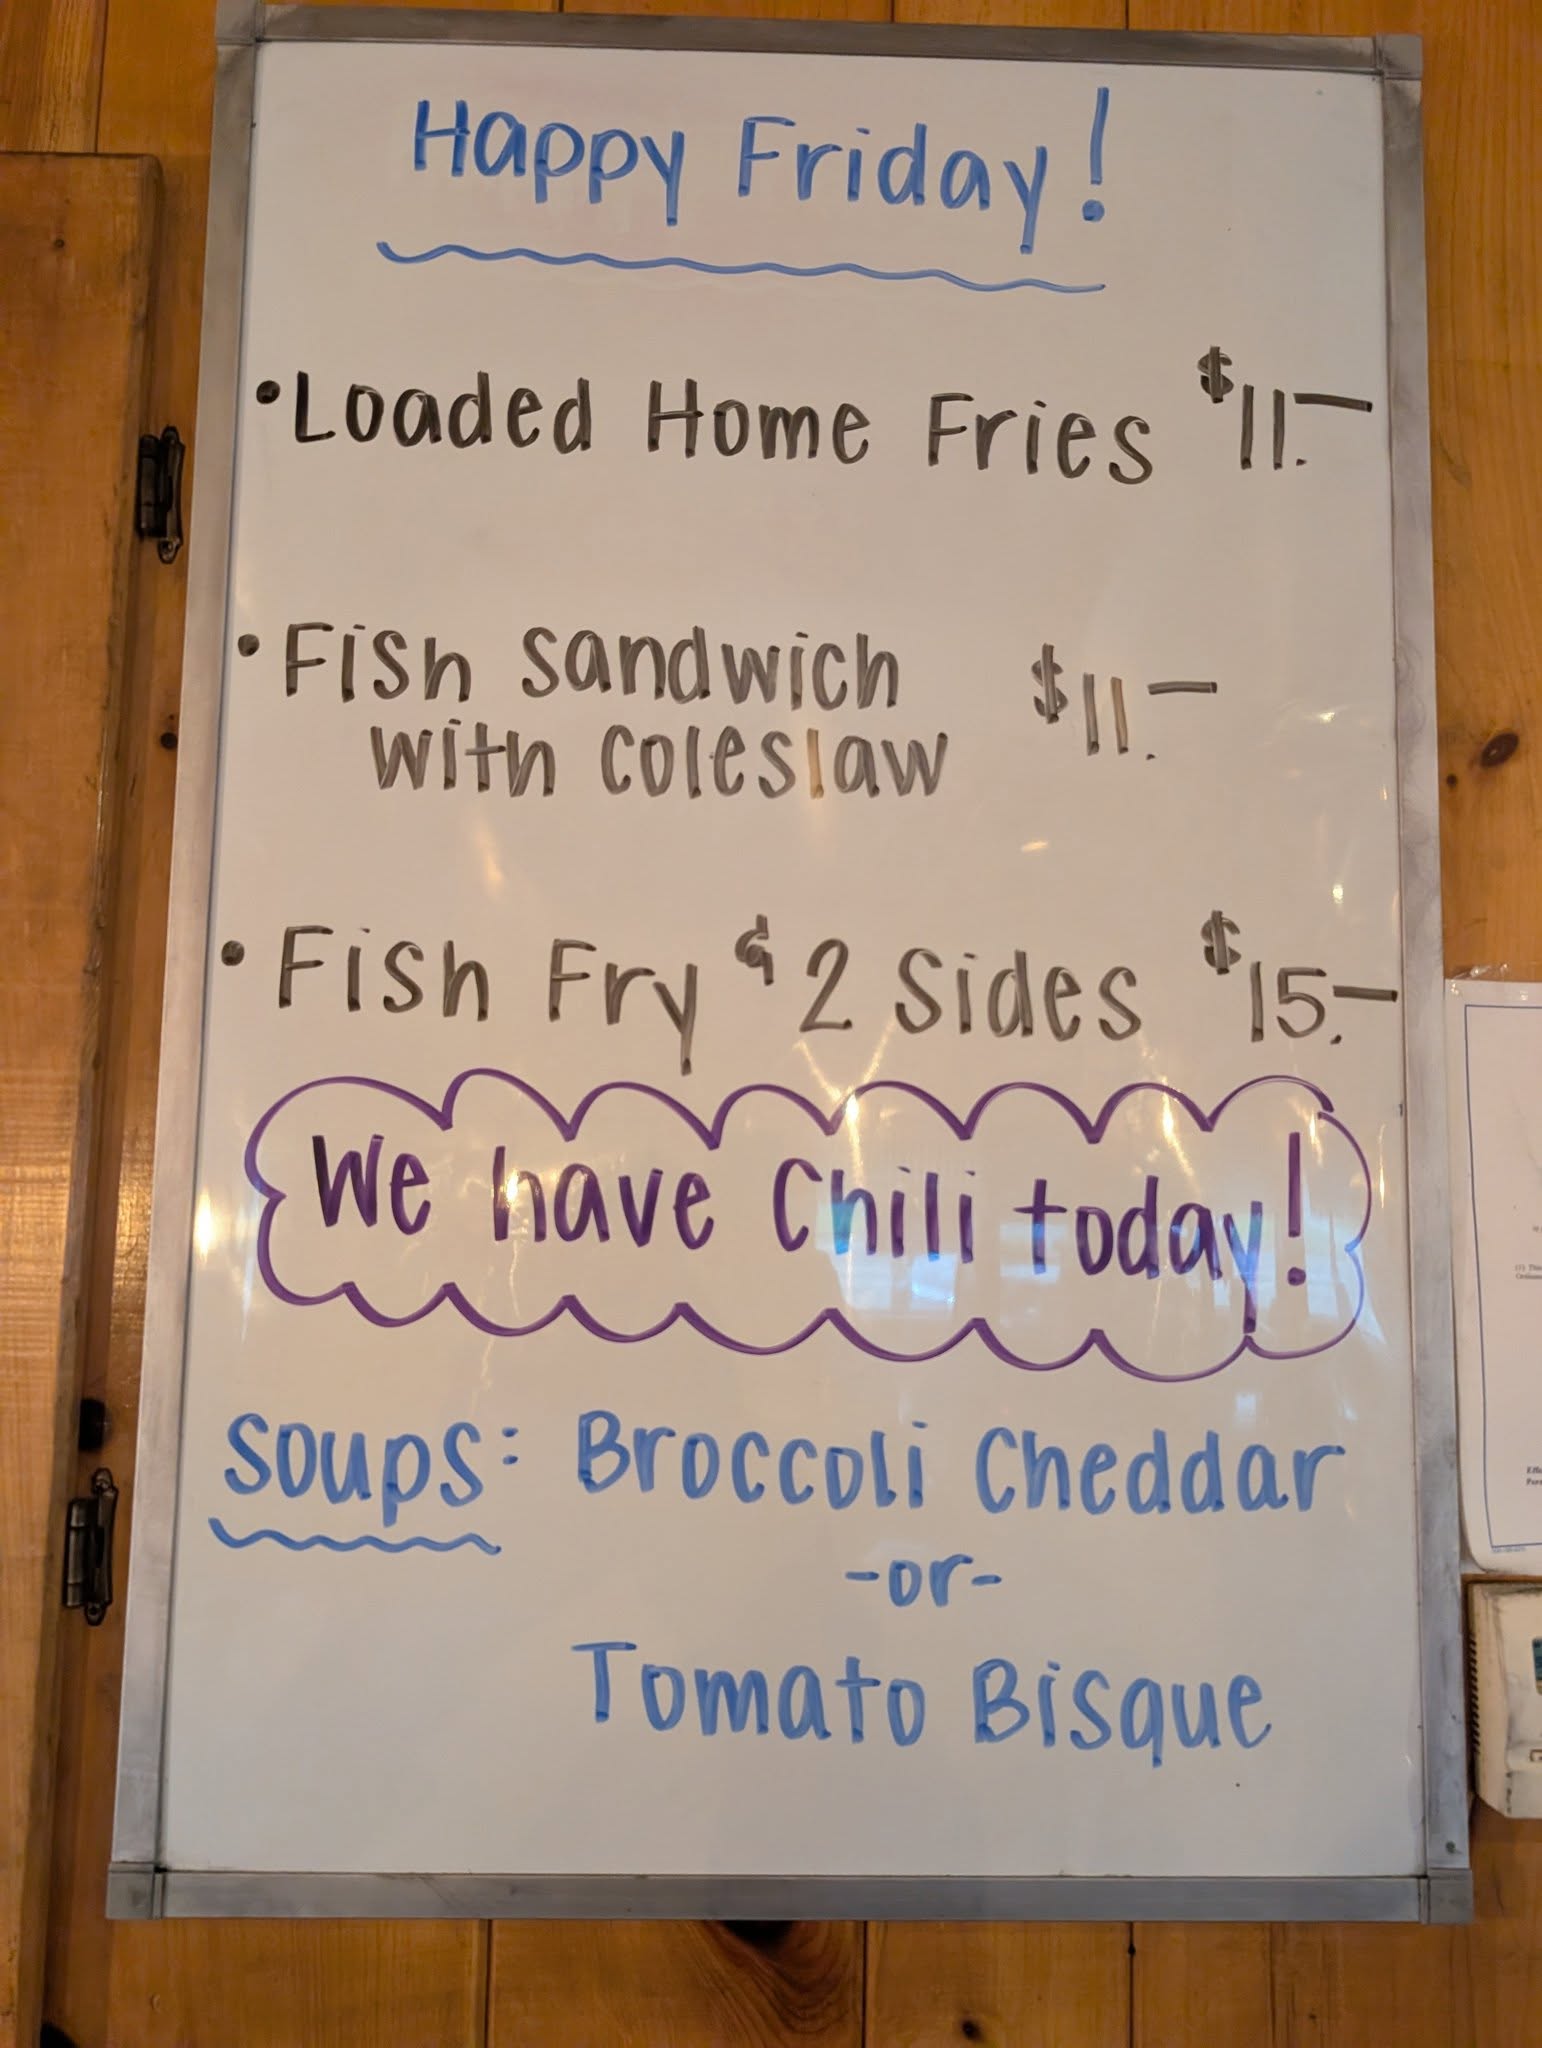 Happy Friday!
• Loaded Home Fries $11.—
• Fish Sandwich $11.—
with coleslaw
• Fish Fry & 2 Sides $15.—
We have Chili today!
Soups: Broccoli Cheddar
-or-
Tomato Bisque